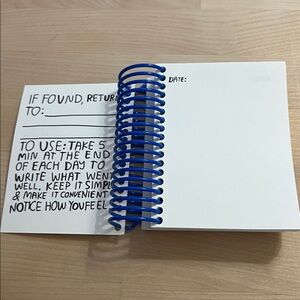 IF FOUND, RETURN
TO:
TO USE: TAKE 5
MIN AT THE END
OF EACH DAY TO
WRITE WHAT WENT
WELL. KEEP IT SIMPLE
& MAKE IT CONVENIENT
NOTICE HOW YOU FEEL
DATE: